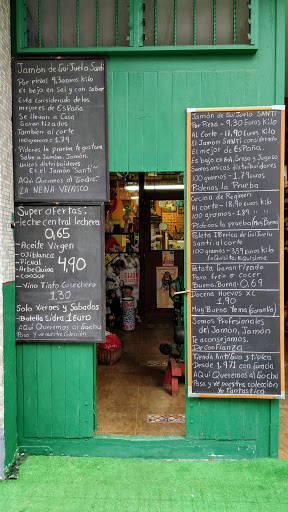 Jamón de Guijuelo Santi
Por piezas 9,30 euros kilo
es bajo en Sal y con sabor
Esta considerado de los
mejores de España
Se llevan a Casa
Garantizados
También al corte
100 gramos = 1.79
Pídenos la prueba te gustará
Salve a Jamón, Jamón
únicos distribuidores
Es el Jamón Santi
Aquí Queremos al
LA NENA VELASCO
Super ofertas:
-leche central lechera
0,65
-Aceite Virgen
-ojiblanca
-Picual
-Arbequina
4,90
-Vino Tinto Cosechero
1.30
Solo Viernes y Sabados
-Botella Sidra 1 Euro
Aquí Queremos al Gocha
Pasa y ve nuestra Colección
Jamón de Guijuelo. SANTI
Por Pieza - 9,30 Euros Kilo
Al Corte - 17,90 Euros Kilo
El Jamón SANTI considerado
el mejor de España.
Es bajo en Sal, Graso y Jugoso
Somos únicos distribuidores
100 gramos - 1.79 Euros
Pídenos la Prueba
Cecina de Reguero
al corte = 18,90 Euros Kilo
100 gramos - 1.89
Pídenos la prueba
Paleta Ibérica de Guijuelo
Santi al corte
100 gramos - 3.59 Euros Kilo
Exquisita, exquisima
Patata Garantizada
Para freir o Cocer
Buena, Buena - 0.69
Docena Huevos XL
1,90
Muy Buena Yema (Garantía)
Somos Profesionales
del Jamón, Jamón
Te aconsejamos.
De Confianza
Tienda Antigua y típica
Desde 1.971 con Gracia
Pasa, y ve nuestra colección
Es Fantastica